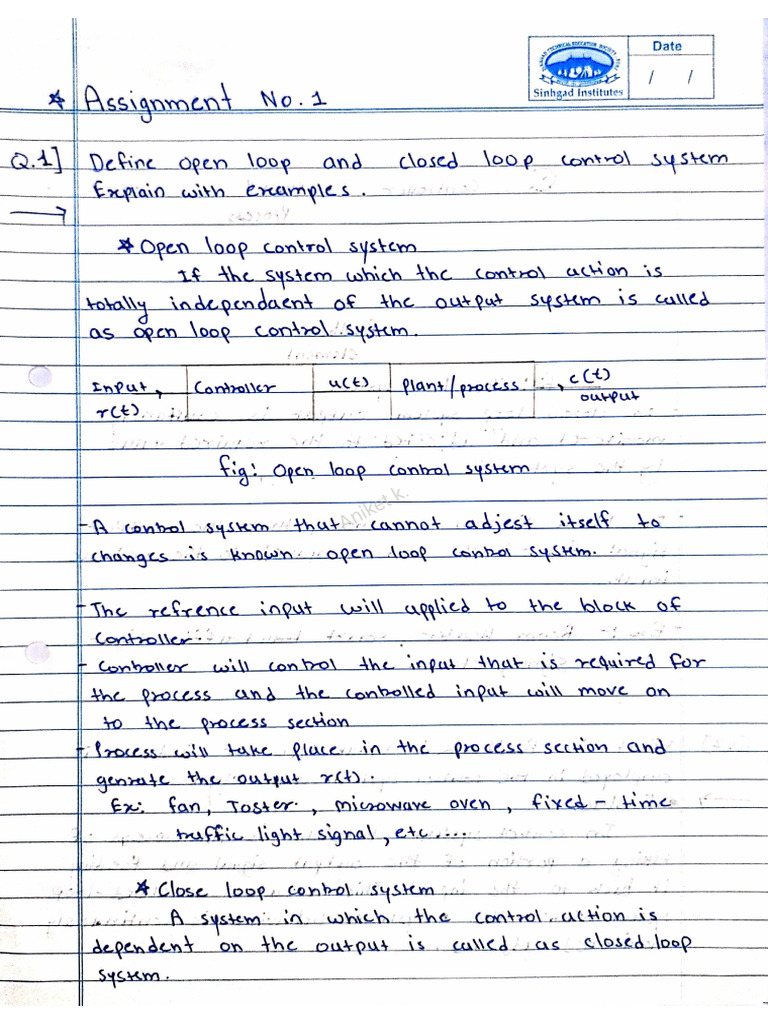 Date
/ /
Sinhgad Institutes
* Assignment No. 1
Q.1] Define open loop and closed loop control system
Explain with examples.
→
* Open loop control system
If the system which the control action is
totally independaent of the output system is called
as open loop control system.
Input, Controller u(t) plant/process , c(t)
r(t) output
fig: Open loop control system
Aniket.k.
- A control system that cannot adjest itself to
changes is known open loop control system.
- The refrence input will applied to the block of
controller.
- Controller will control the input that is required for
the process and the controlled input will move on
to the process section
- Process will take place in the process section and
genrate the output r(t).
Ex: fan, Toster, microwave oven, fixed - time
traffic light signal, etc....
* Close loop control system
A system in which the control action is
dependent on the output is called as closed loop
system.